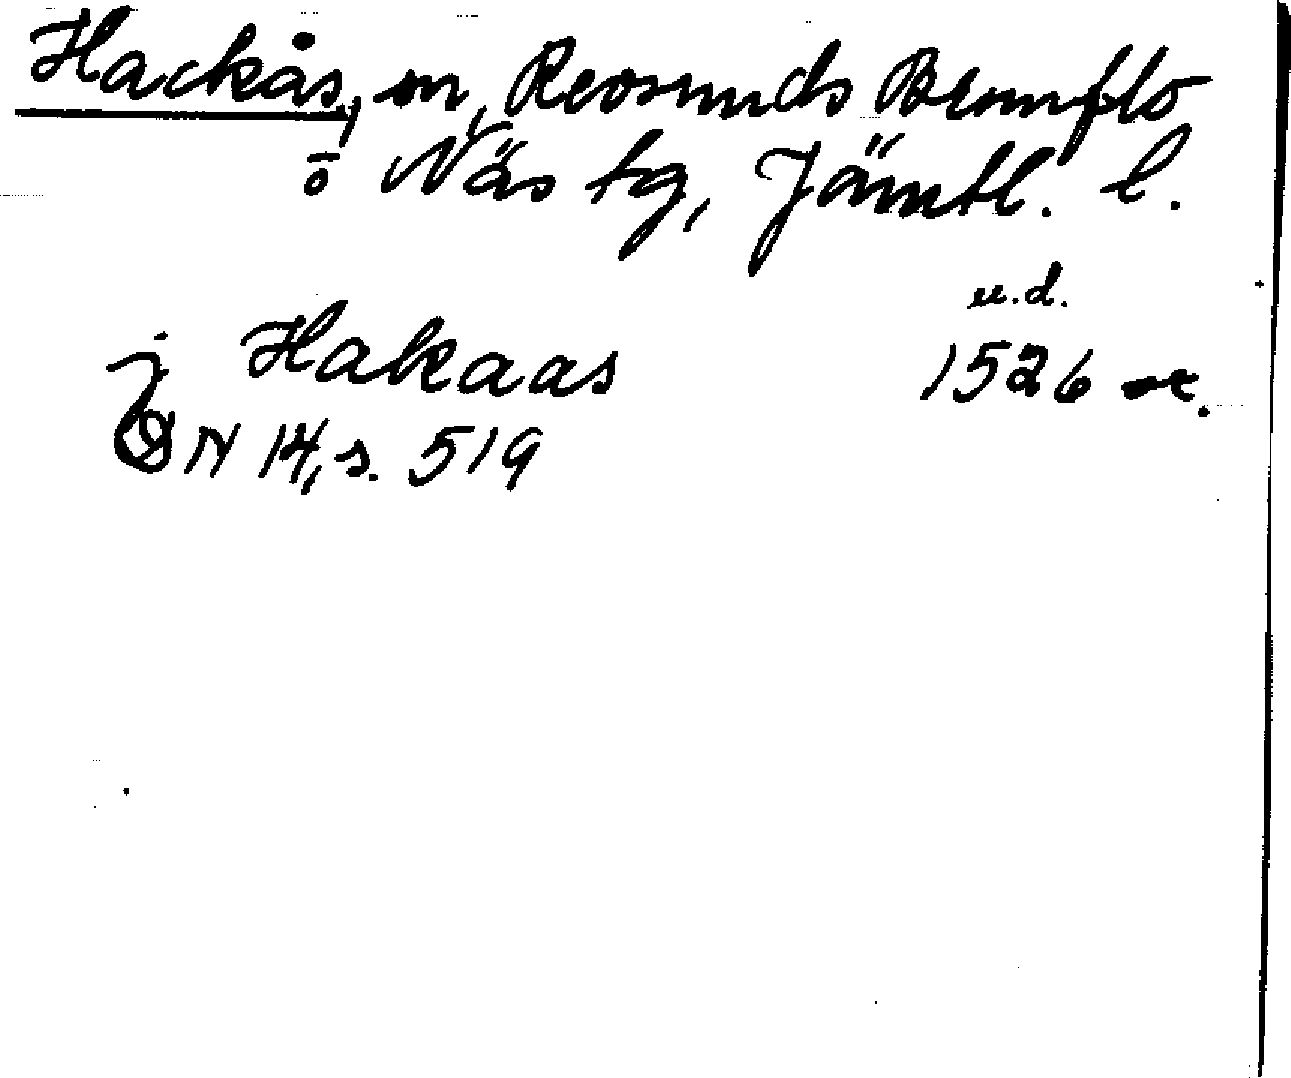 Hackås, sn, Revsunds Brunflo
o Näs tg, Jämtl. l.
u.d.
j Hakaas 1526 or.
DN 14, s. 519